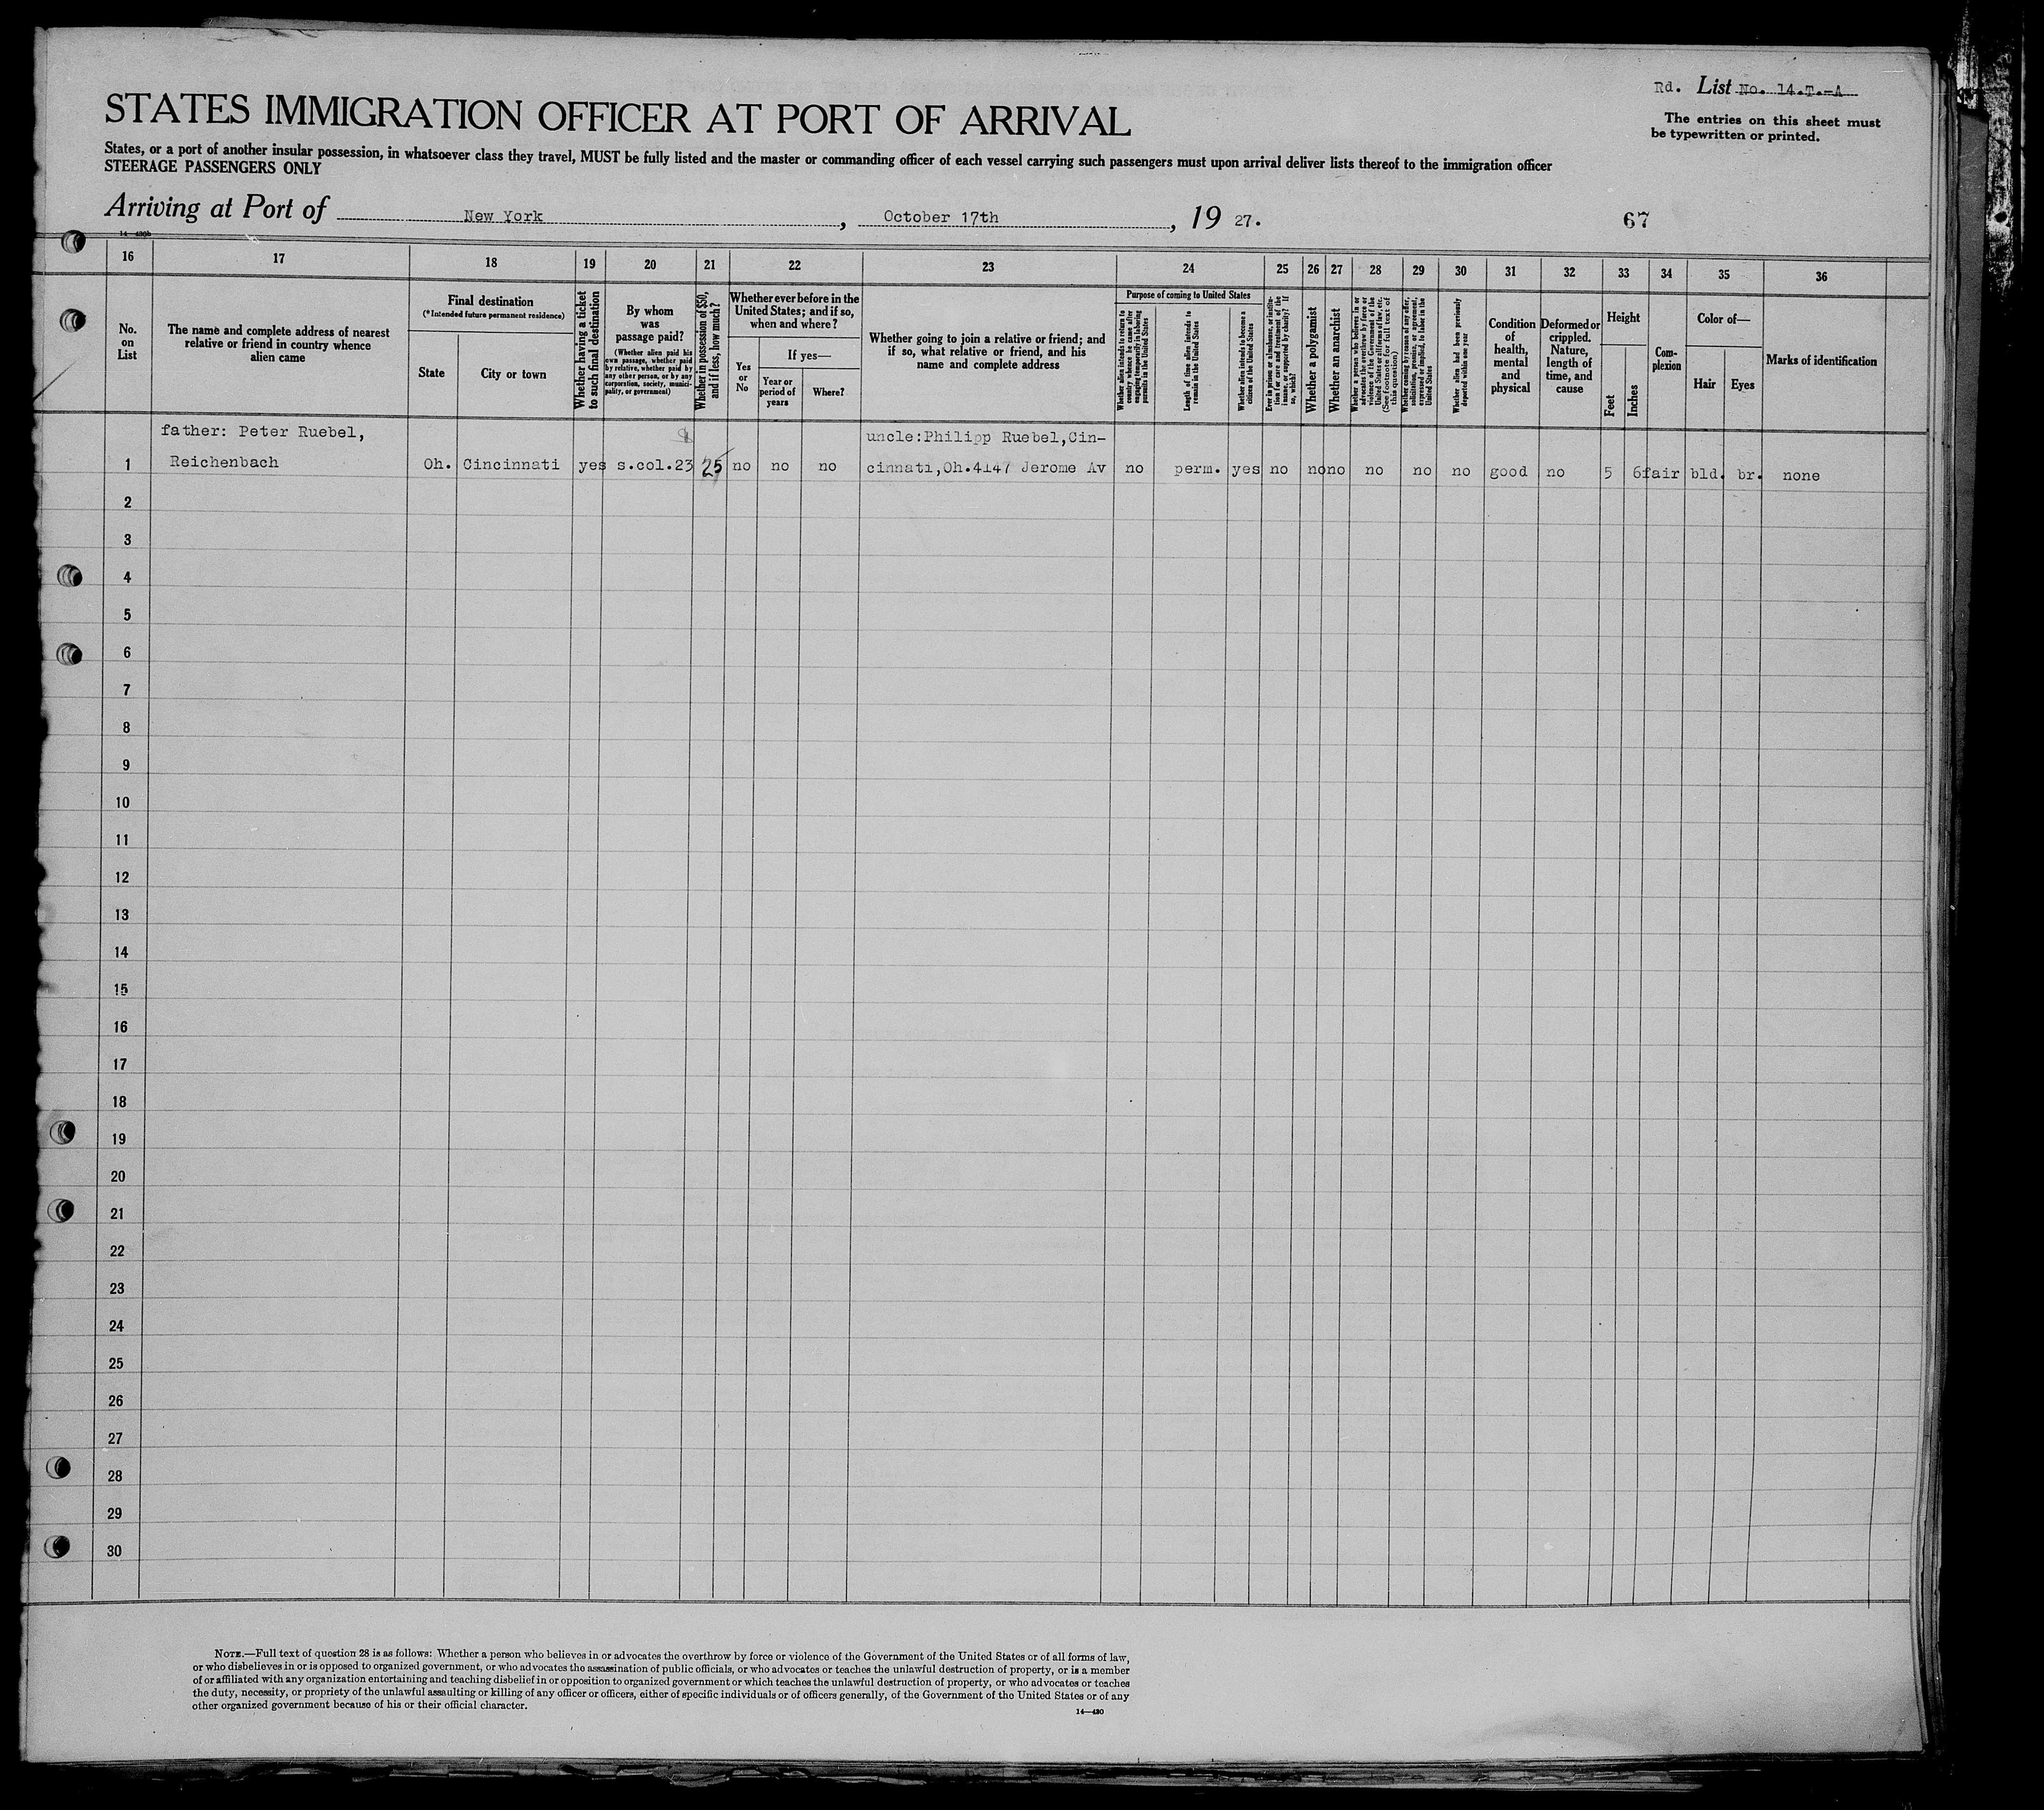 Rd. List No. 14.T.-A
STATES IMMIGRATION OFFICER AT PORT OF ARRIVAL
The entries on this sheet must
be typewritten or printed.
States, or a port of another insular possession, in whatsoever class they travel, MUST be fully listed and the master or commanding officer of each vessel carrying such passengers must upon arrival deliver lists thereof to the immigration officer
STEERAGE PASSENGERS ONLY
Arriving at Port of New York, October 17th, 19 27.
67
14—430b
16 17 18 19 20 21 22 23 24 25 26 27 28 29 30 31 32 33 34 35 36
No.
on
List
The name and complete address of nearest
relative or friend in country whence
alien came
Final destination
(*Intended future permanent residence)
State
City or town
Whether having a ticket
to such final destination
By whom
was
passage paid?
(Whether alien paid his
own passage, whether paid
by relative, whether paid by
any other person, or by any
corporation, society, munici-
pality, or government)
Whether in possession of $50,
and if less, how much?
Whether ever before in the
United States; and if so,
when and where?
Yes
or
No
If yes—
Year or
period of
years
Where?
Whether going to join a relative or friend; and
if so, what relative or friend, and his
name and complete address
Purpose of coming to United States
Whether alien intends to return to
country whence he came after
engaging temporarily in laboring
pursuits in the United States
Length of time alien intends to
remain in the United States
Whether alien intends to become a
citizen of the United States
Ever in prison or almshouse, or institu-
tion for care and treatment of the
insane, or supported by charity? If
so, which?
Whether a polygamist
Whether an anarchist
Whether a person who believes in or
advocates the overthrow by force or
violence of the Government of the
United States or all forms of law, etc.
(See footnote for full text of
this question)
Whether coming by reason of any offer,
solicitation, promise, or agreement,
expressed or implied, to labor in the
United States
Whether alien had been previously
deported within one year
Condition
of
health,
mental
and
physical
Deformed or
crippled.
Nature,
length of
time, and
cause
Height
Feet
Inches
Com-
plexion
Color of—
Hair
Eyes
Marks of identification
father: Peter Ruebel, uncle:Philipp Ruebel,Cin-
1 Reichenbach Oh. Cincinnati yes s.col.23 25 no no no cinnati,Oh.4147 Jerome Av no perm. yes no no no no no no good no 5 6 fair bld. br. none
2
3
4
5
6
7
8
9
10
11
12
13
14
15
16
17
18
19
20
21
22
23
24
25
26
27
28
29
30
NOTE.—Full text of question 28 is as follows: Whether a person who believes in or advocates the overthrow by force or violence of the Government of the United States or of all forms of law,
or who disbelieves in or is opposed to organized government, or who advocates the assassination of public officials, or who advocates or teaches the unlawful destruction of property, or is a member
of or affiliated with any organization entertaining and teaching disbelief in or opposition to organized government or which teaches the unlawful destruction of property, or who advocates or teaches
the duty, necessity, or propriety of the unlawful assaulting or killing of any officer or officers, either of specific individuals or of officers generally, of the Government of the United States or of any
other organized government because of his or their official character.
14—430